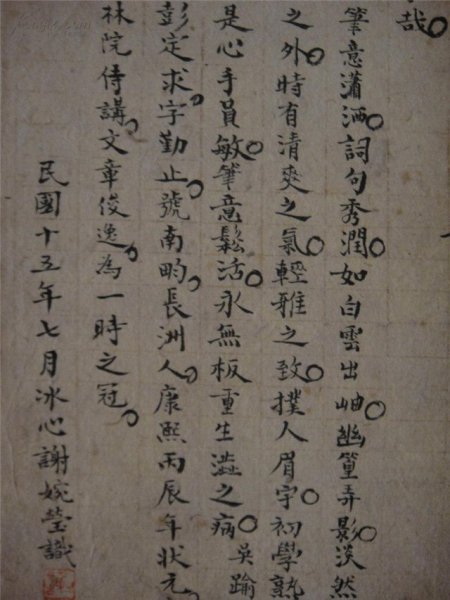 哉。
筆意瀟洒。詞句秀潤。如白雲出岫。幽篁弄影。淡然
之外。時有清爽之氣。輕雅之致。撲人眉宇。初學熟
是心手員敏。筆意鬆活。永無板重生澁之病。吳踰
彭定求。字勤止。號南畇。長洲人。康熙丙辰年狀元。
林院侍講。文章俊逸。為一時之冠。
民國十五年七月冰心謝婉瑩識